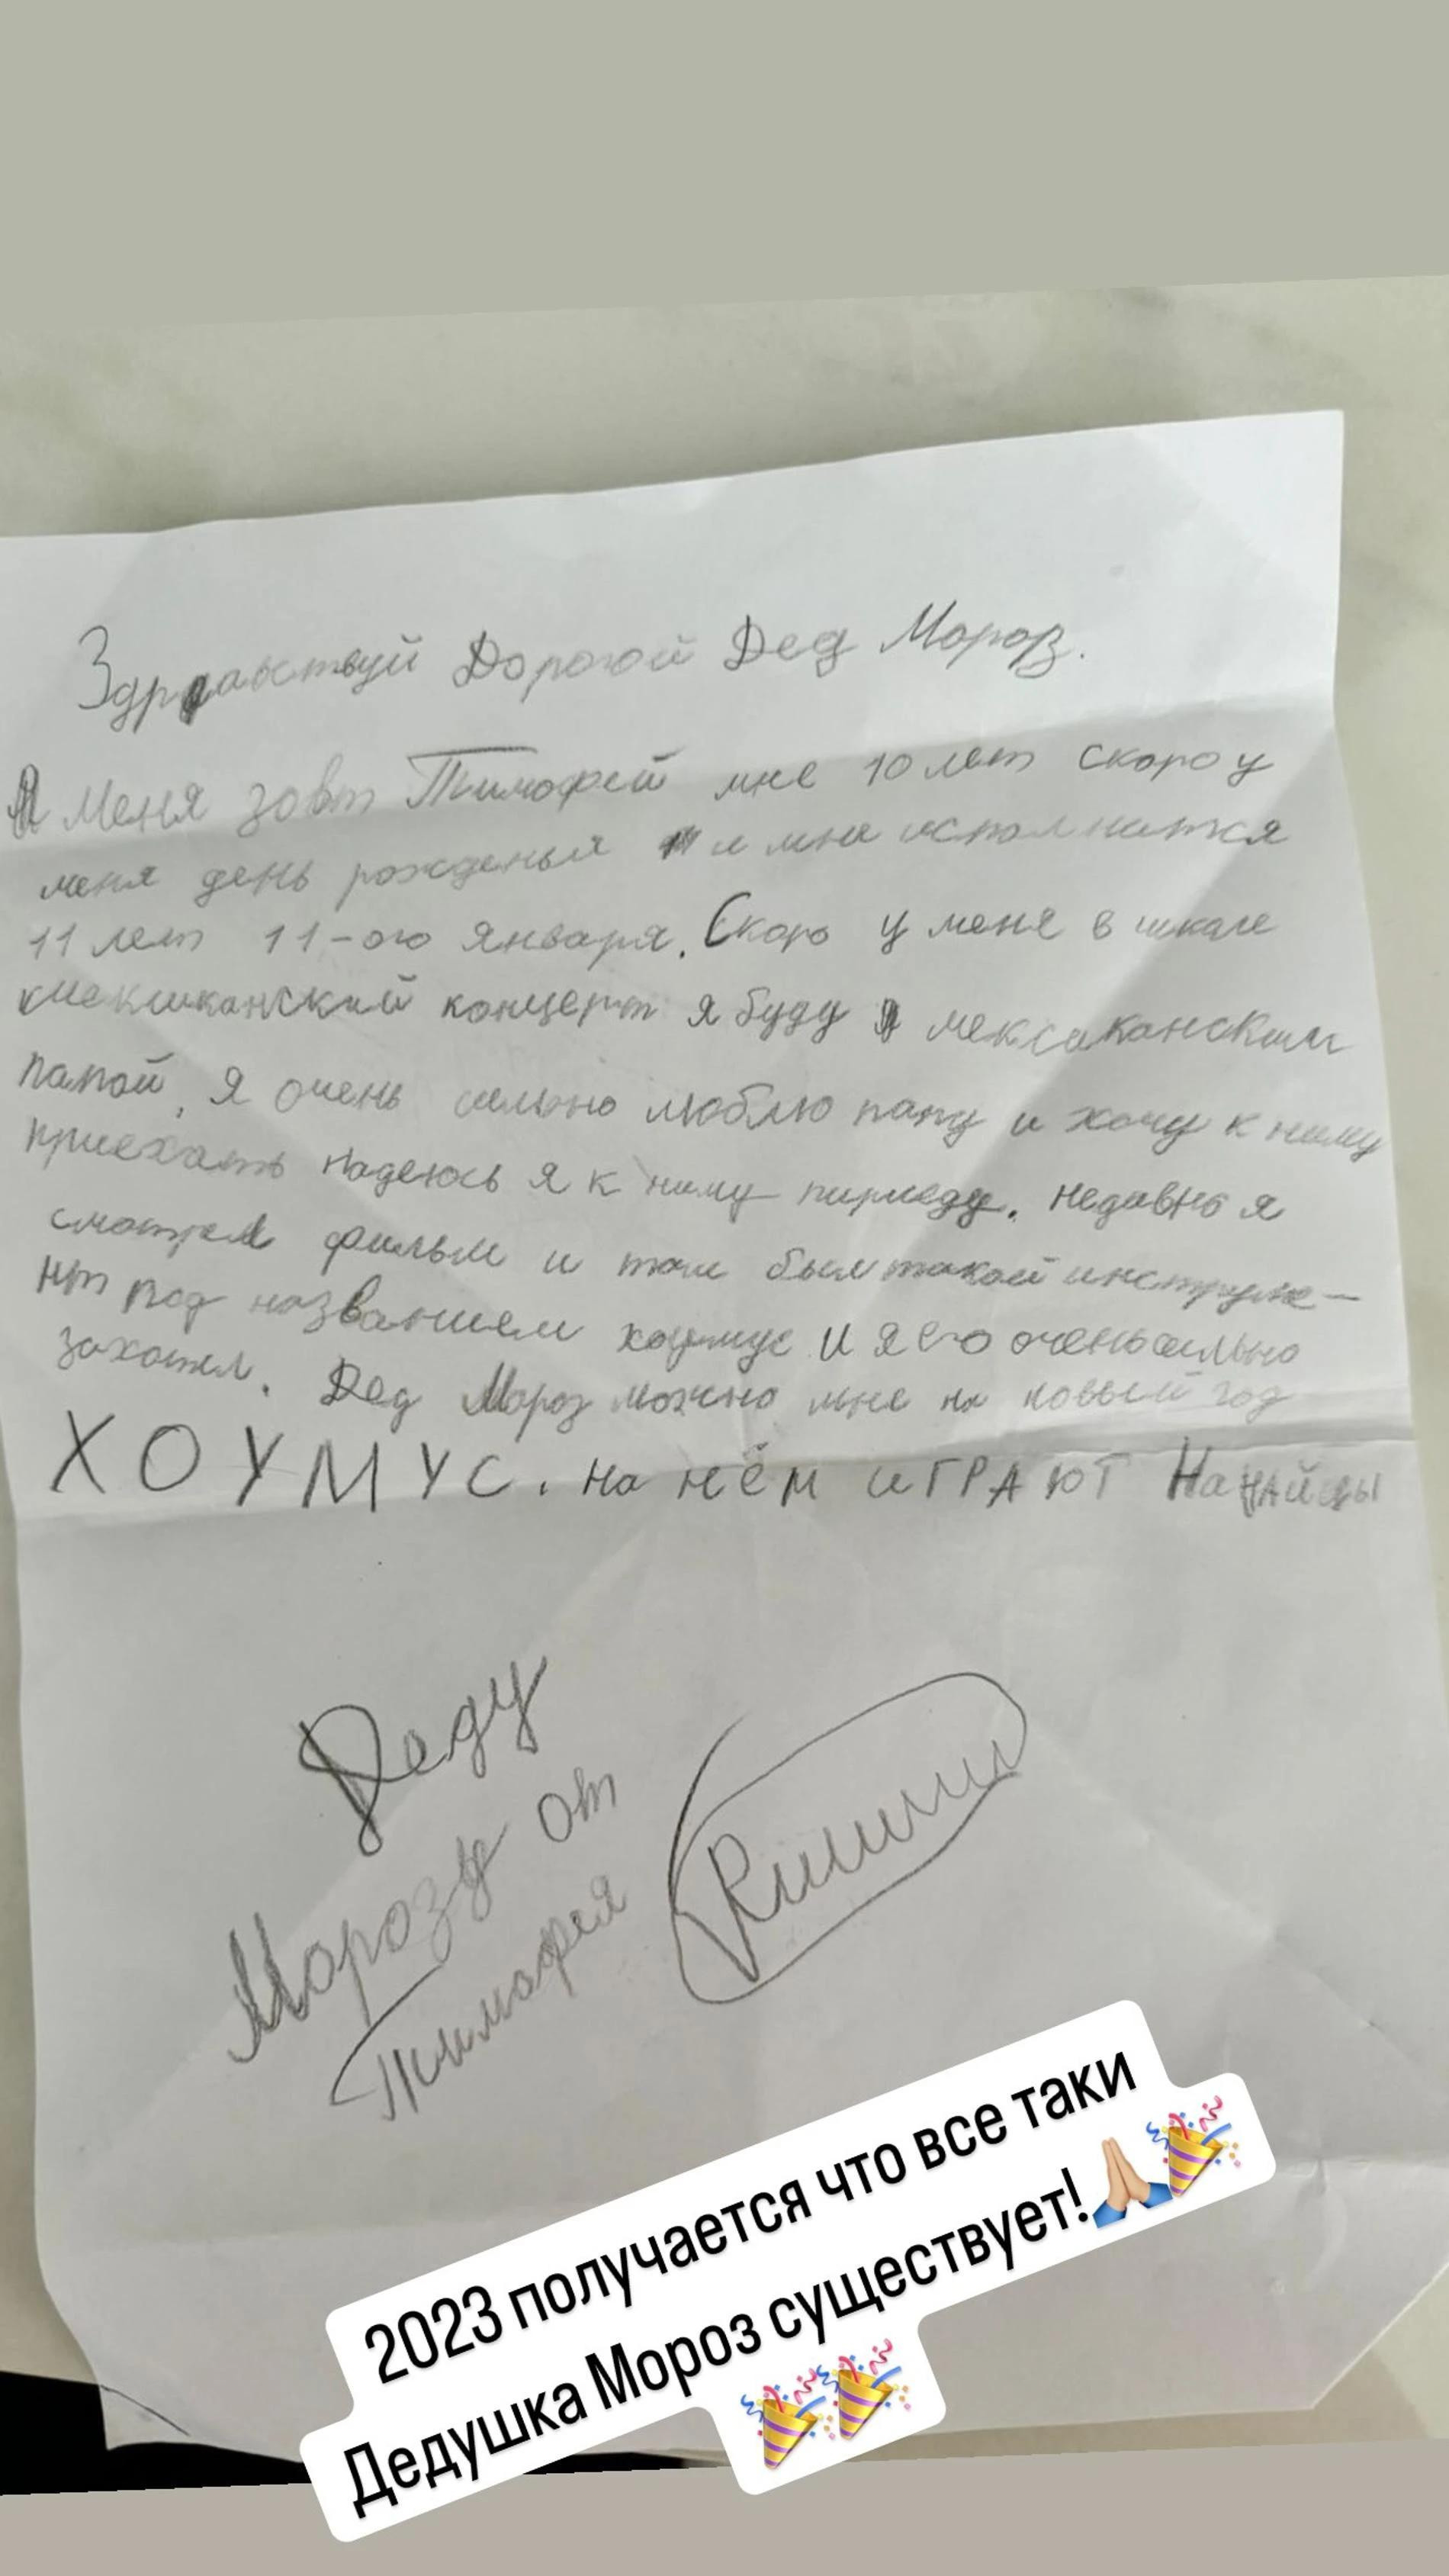 Здравствуй Дорогой Дед Мороз.
Меня зовт Тимофей мне 10 лет скоро у
меня день рожденья и мне исполнится
11 лет 11-ого января. Скоро у меня в школе
концерт я буду мексиканским
папой, я очень сильно люблю папу и хочу к нему
приехать надеюсь я к нему приеду. недавно я
смотрел фильм и там был такой инструме-
нт под названием хоумус и я его очень сильно
захотел. Дед Мороз можно мне на новый год
ХОУМУС. на нём ИГРАЮТ НаНАЙцы
Деду
Морозу от
Тимофея
2023 получается что все таки
Дедушка Мороз существует!🙏🏼🎉
🎉🎉